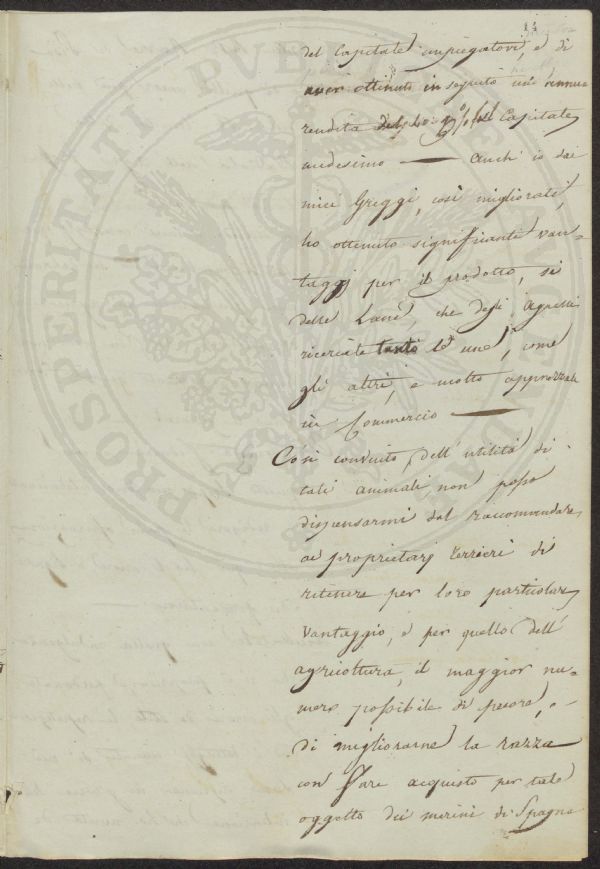 14
del Capitale impiegatovi, e di
aver ottenuto in seguito un'annua
rendita del 40 p% sul Capitale
medesimo — Anch' io dai
miei Greggi, così migliorati,
ho ottenuto significanti van=
taggi per il prodotto, sì
delle Lane, che degli Agnelli
ricercate tanto le une, come
gli altri, e molto apprezzate
in Commercio —
Così convinto dell' utilità di
tali animali non posso
dispensarmi dal raccomandare
ai proprietarj Terrieri di
ritenere per loro particolare
vantaggio, e per quello dell'
agricoltura, il maggior nu=
mero possibile di pecore, e
di migliorarne la razza
con fare acquisto per tale
oggetto dei merini di Spagna
PROSPERITATI PVBLICAE